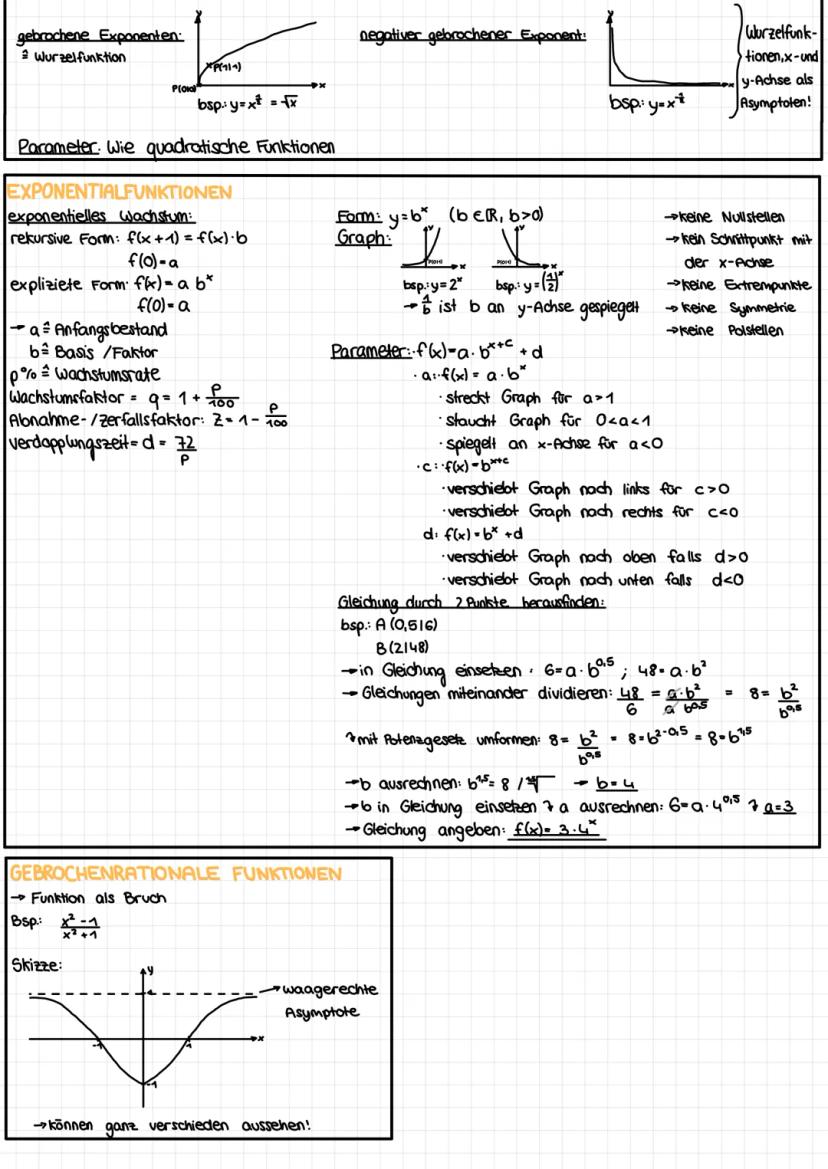 gebrochene Exponenten:
≙ Wurzelfunktion
y
P(1|1)
P(0|0)
x
bsp.: y = x^½ = √x
negativer gebrochener Exponent:
y
x
bsp.: y = x^-½
Wurzelfunk-
tionen, x- und
y-Achse als
Asymptoten!
Parameter: Wie quadratische Funktionen
EXPONENTIALFUNKTIONEN
exponentielles Wachstum:
rekursive Form: f(x+1) = f(x)·b
f(0) = a
expliziete Form: f(x) = a b^x
f(0) = a
→ a ≙ Anfangsbestand
b ≙ Basis / Faktor
p% ≙ Wachstumsrate
Wachstumsfaktor = q = 1 + p/100
Abnahme-/Zerfallsfaktor: Z = 1 - p/100
Verdopplungszeit = d = 72/p
Form: y = b^x (b ∈ ℝ, b > 0)
Graph:
y
P(0|1)
x
y
P(0|1)
x
bsp.: y = 2^x
bsp.: y = (1/2)^x
→ 1/b ist b an y-Achse gespiegelt
→ keine Nullstellen
→ kein Schnittpunkt mit
der x-Achse
→ keine Extrempunkte
→ keine Symmetrie
→ keine Polstellen
Parameter: f(x) = a · b^x+c + d
· a: f(x) = a · b^x
· streckt Graph für a > 1
· staucht Graph für 0 < a < 1
· spiegelt an x-Achse für a < 0
· c: f(x) = b^x+c
· verschiebt Graph nach links für c > 0
· verschiebt Graph nach rechts für c < 0
d: f(x) = b^x + d
· verschiebt Graph nach oben falls d > 0
· verschiebt Graph nach unten falls d < 0
Gleichung durch 2 Punkte herausfinden:
bsp.: A (0,5|6)
B (2|48)
→ in Gleichung einsetzen: 6 = a · b^0,5 ; 48 = a · b²
→ Gleichungen miteinander dividieren: 48/6 = a·b²/a b^0,5 = 8 = b²/b^0,5
↴ mit Potenzgesetz umformen: 8 = b²/b^0,5 = 8 = b^2-0,5 = 8 = b^1,5
→ b ausrechnen: b^1,5 = 8 / ^1,5√ → b = 4
→ b in Gleichung einsetzen ↴ a ausrechnen: 6 = a · 4^0,5 ↴ a = 3
→ Gleichung angeben: f(x) = 3 · 4^x
GEBROCHENRATIONALE FUNKTIONEN
→ Funktion als Bruch
Bsp.: x² - 1 / x² + 1
Skizze:
y
1
→ waagerechte
Asymptote
x
-1
1
-1
→ können ganz verschieden aussehen!